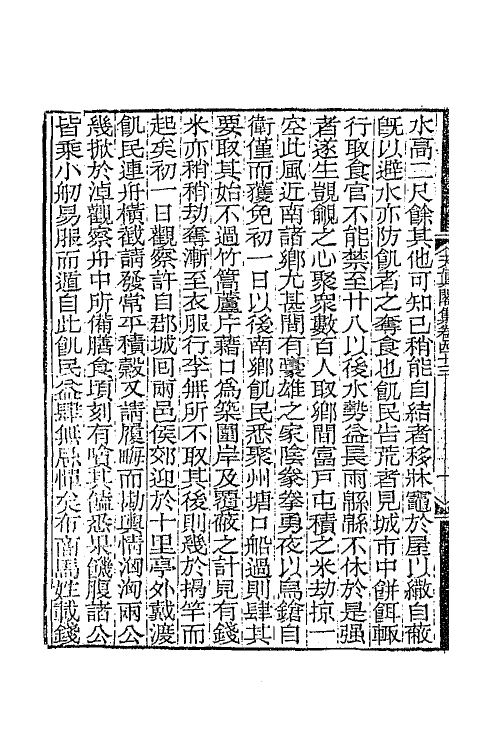 水高二尺餘其他可知已稍能自結者移牀竈於屋以繖自蔽
旣以避水亦防飢者之奪食也飢民告荒者見城市中餅餌輙
行取食官不能禁至廿八以後水勢益長雨縣縣不休於是强
者遂生覬覦之心聚衆數百人取鄉間富戸屯積之米劫掠一
空此風近南諸鄉尤甚間有豪雄之家陰豢拳勇夜以鳥鎗自
衛僅而獲免初一日以後南鄉飢民悉聚州塘口船過則肆其
要取其始不過竹篙蘆片藉口爲築圍岸及覆蔽之計見有錢
米亦稍稍劫奪漸至衣服行李無所不取其後則幾於揭竿而
起矣初一日觀察許自郡城回兩邑侯郊迎於十里亭外戴渡
飢民連舟橫截請發常平積穀又請履畮而勘輿情洶洶兩公
幾掀於淖觀察舟中所備膳食頃刻有噉其饁悉果饑腹諸公
皆乘小舠易服而遁自此飢民益肆無忌憚矣布商馬姓載錢
天真閣集卷四十三